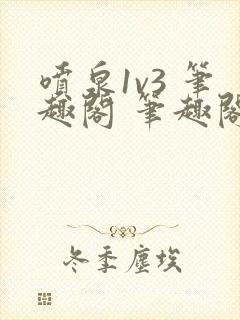 噴泉1v3 筆
趣閣 筆趣閣
冬季塵埃